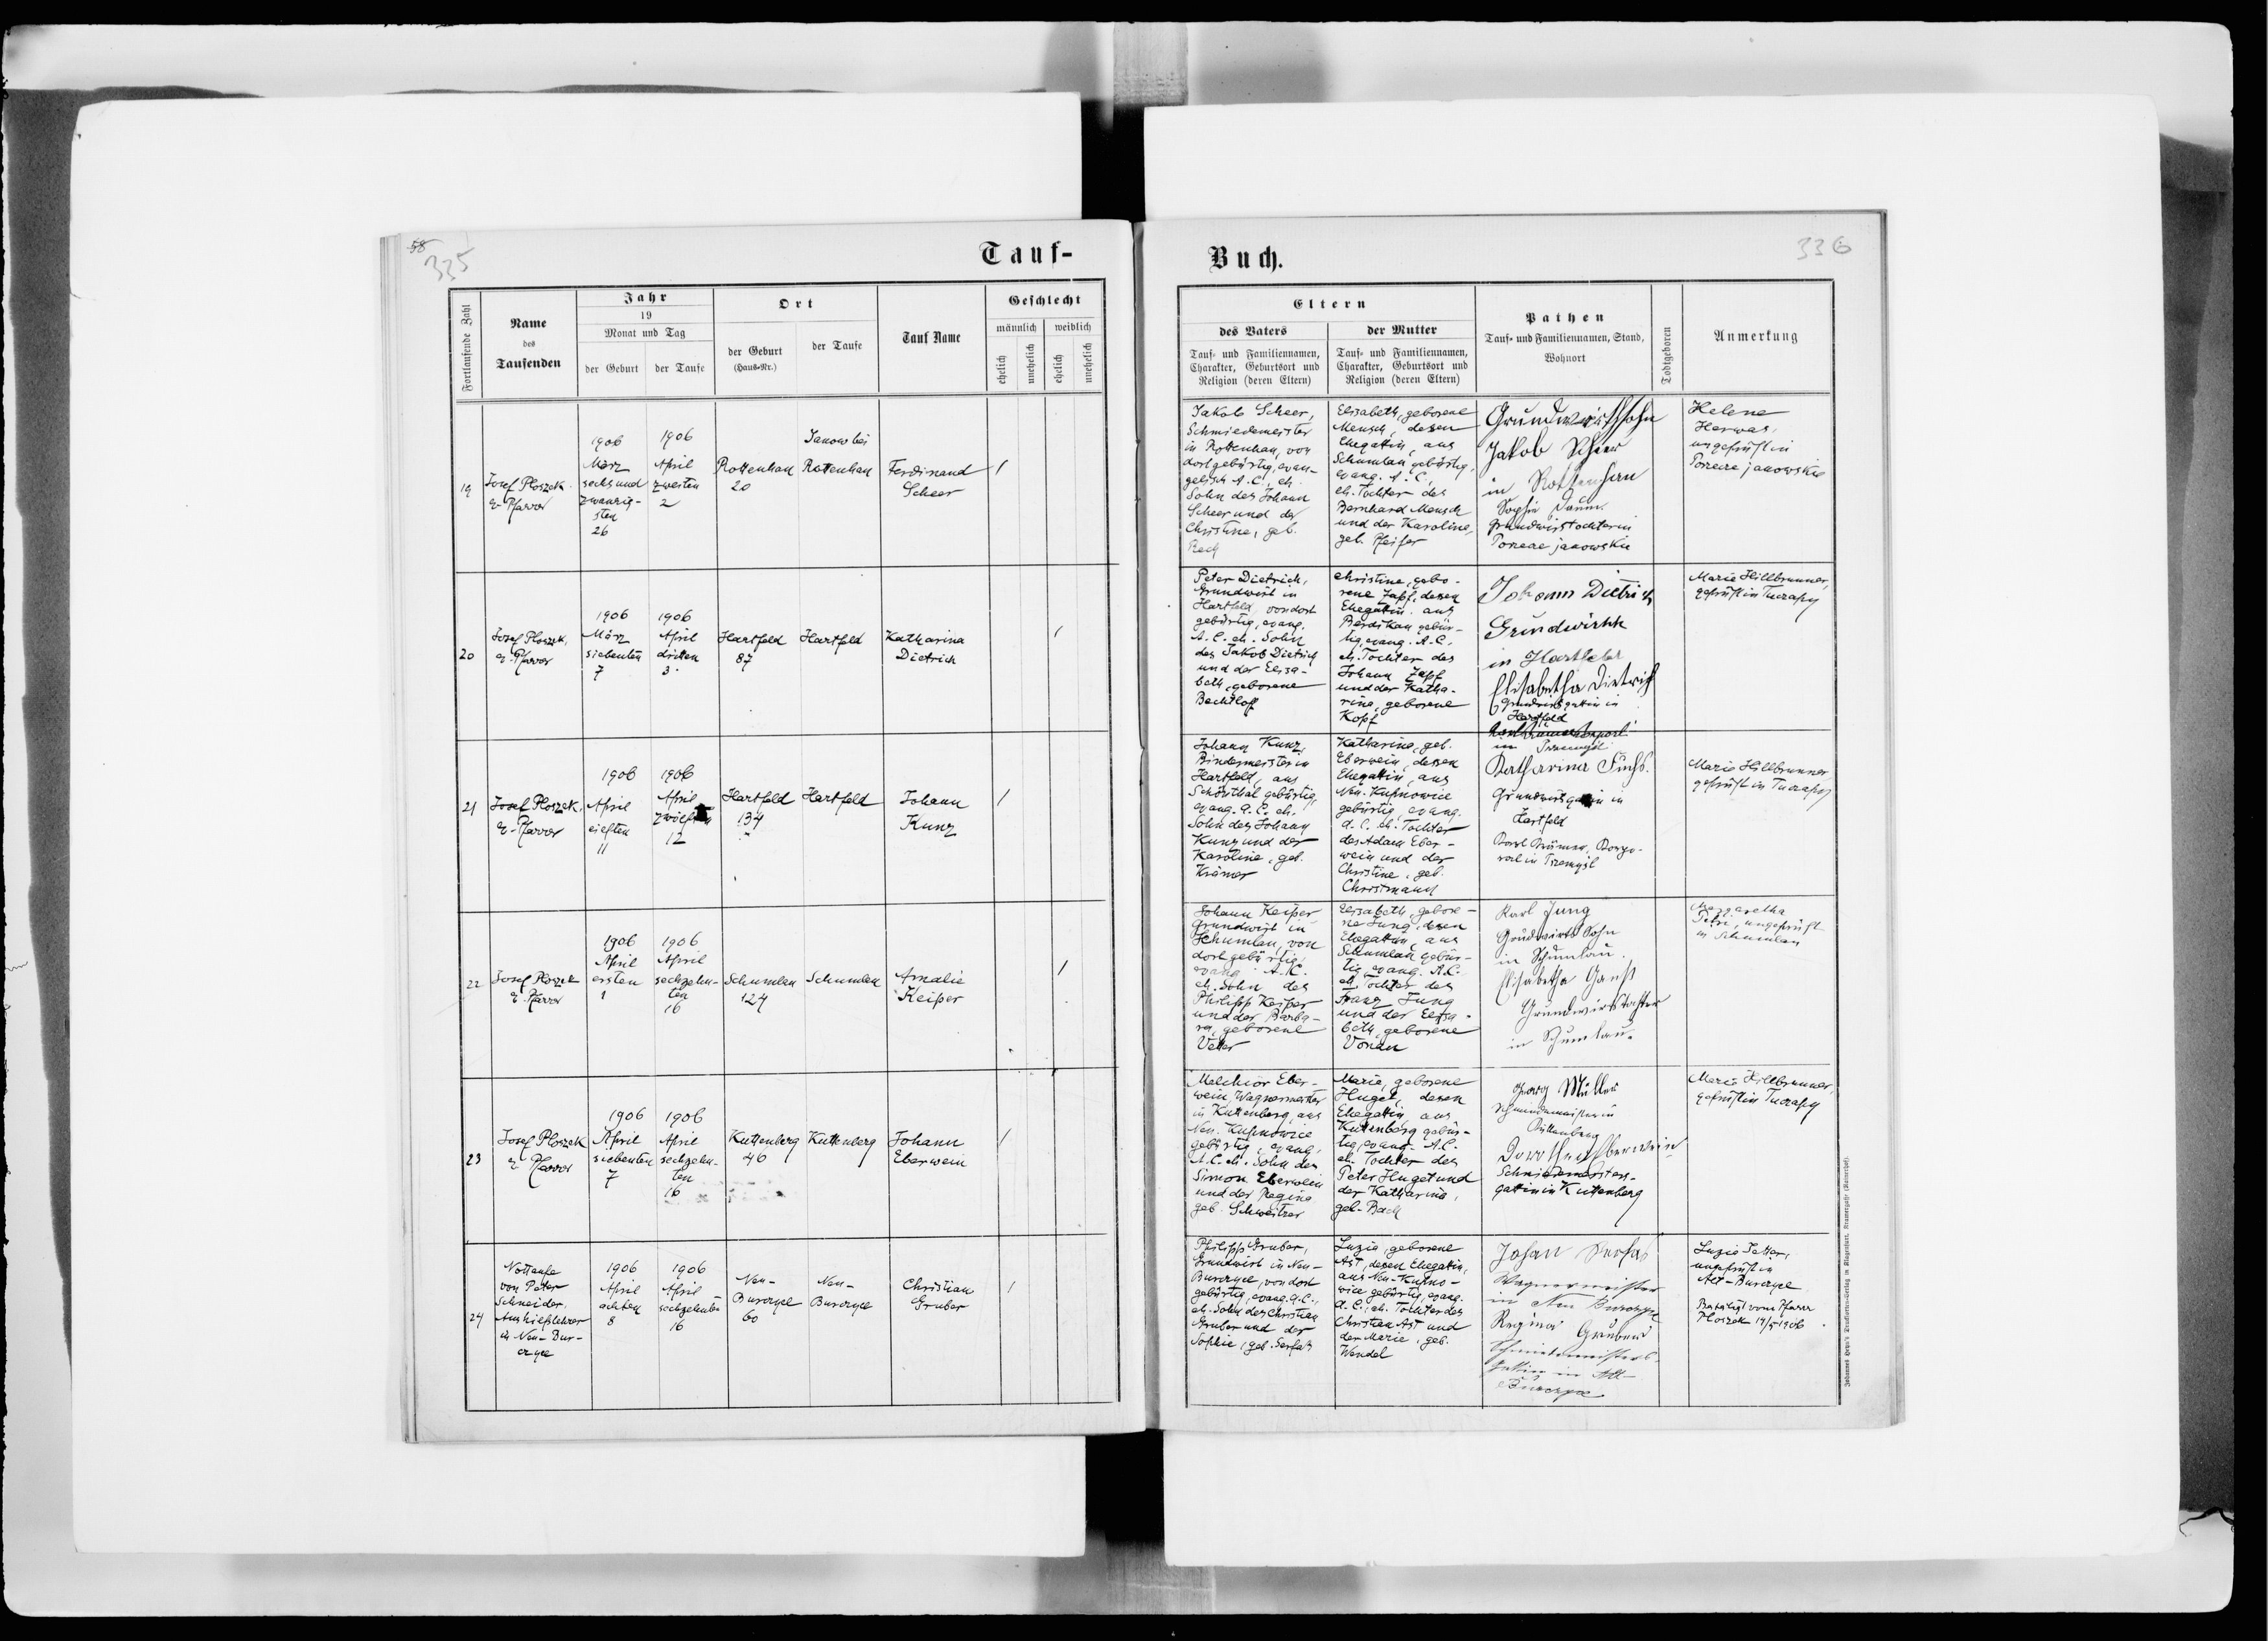 58
335
Tauf-
Fortlaufende Zahl
Name
des
Taufenden
Jahr
19
Monat und Tag
der Geburt
der Taufe
Ort
der Geburt
(Haus-Nr.)
der Taufe
Tauf Name
Geschlecht
männlich
weiblich
ehelich
unehelich
ehelich
unehelich
19
Josef Ploszek
ev. Pfarrer
1906
März
sechsund
zwanzig-
sten
26
1906
April
zweiten
2
Rottenhan
20
Janow bei
Rottenhan
Ferdinand
Scheer
1
20
Josef Ploszek,
ev. Pfarrer
1906
März
siebenten
7
1906
April
dritten
3.
Hartfeld
87
Hartfeld
Katharina
Dietrich
1
21
Josef Ploszek,
ev. Pfarrer
1906
April
elften
11
1906
April
zwölften
12
Hartfeld
134
Hartfeld
Johann
Kunz
1
22
Josef Ploszek
ev. Pfarrer
1906
April
ersten
1
1906
April
sechzehn-
ten
16
Schumlau
124
Schumlau
Amalie
Keiper
1
23
Josef Ploszek
ev. Pfarrer
1906
April
siebenten
7
1906
April
sechzehn-
ten
16
Kuttenberg
46
Kuttenberg
Johann
Eberwein
1
24
Nottaufe
von Peter
Schneider,
Aushilfslehrer
in Neu-Bur-
czyce
1906
April
achten
8
1906
April
sechzehnten
16
Neu-
Burczyce
60
Neu-
Burczyce
Christian
Gruber
1
Buch.
336
Eltern
des Vaters
Tauf- und Familiennamen,
Charakter, Geburtsort und
Religion (deren Eltern)
der Mutter
Tauf- und Familiennamen,
Charakter, Geburtsort und
Religion (deren Eltern)
Pathen
Tauf- und Familiennamen, Stand,
Wohnort
Todtgeboren
Anmerkung
Jakob Scheer,
Schmiedemeister
in Rottenhan, von
dort gebürtig, evan-
gelisch A.C., eh.
Sohn des Johann
Scheer und der
Christine, geb.
Rech
Elisabeth, geborene
Mensch, dessen
Ehegattin, aus
Schumlau gebürtig,
evang. A.C.,
eh. Tochter des
Bernhard Mensch
und der Karoline,
geb. Pfeifer
Grundwirthsohn
Jakob Scheer
in Rottenhan
Sophie
Grundwirtstochter in
Porzecze janowskie
Helene
Herwas,
ungeprüft in
Porzecze janowskie
Peter Dietrich,
Grundwirt in
Hartfeld, von dort
gebürtig, evang.
A.C. eh. Sohn
des Jakob Dietrich
und der Elisa-
beth, geborene
Bechtloff
Christine, gebo-
rene Zapf, dessen
Ehegattin, aus
Berdikau gebür-
tig, evang. A.C.
eh. Tochter des
Johann Zapf
und der Katha-
rine, geborene
Kopf
Johann Dietrich
Grundwirth
in Hartfeld
Elisabetha Dietrich
Grundwirtsgattin in
Hartfeld
Marie Hillbrunner,
geprüft in Tuczapy
Johann Kunz,
Bindermeister in
Hartfeld, aus
Schönthal gebürtig,
evang. A.C. eh.
Sohn des Johann
Kunz und der
Karoline, geb.
Krämer
Katharina, geb.
Eberwein, dessen
Ehegattin, aus
Neu-Kupnowice
gebürtig, evang.
A.C. eh. Tochter
des Adam Eber-
wein und der
Christine, geb.
Christmann
in Przemyśl
Katharina Fuchs.
Grundwirtsgattin in
Hartfeld
Karl Krämer, Korpo-
ral in Przemyśl
Marie Hillbrunner
geprüft in Tuczapy
Johann Keiper
Grundwirt in
Schumlau, von
dort gebürtig,
evang. A.C.
eh. Sohn des
Philipp Keiper
und der Barba-
ra, geborene
Vetter
Elisabeth, gebore-
ne Jung, dessen
Ehegattin, aus
Schumlau gebür-
tig, evang. A.C.
eh. Tochter des
Franz Jung
und der Elisa-
beth, geborene
Vonau
Karl Jung
Grudwirts Sohn
in Schumlau.
Elisabetha
Grundwirtstochter
in Schumlau.
Margaretha
Petri, ungeprüft
in Schumlau
Melchior Eber-
wein, Wagnermeister
in Kuttenberg, aus
Neu-Kupnowice
gebürtig, evang.
A.C. eh. Sohn des
Simon Eberwein
und der Regina
geb. Schweitzer
Marie, geborene
Huget, dessen
Ehegattin, aus
Kuttenberg gebür-
tig, evang. A.C.
eh. Tochter des
Peter Huget und
der Katharina,
geb. Bach
Georg Müller
Schmiedemeister in
Kuttenberg
Dorothea Eberwein
Schmiedemeisters-
gattin in Kuttenberg
Marie Hillbrunner,
geprüft in Tuczapy
Philipp Gruber,
Grundwirt in Neu-
Burczyce, von dort
gebürtig, evang. A.C.,
eh. Sohn des Christian
Gruber und der
Sophie, geb. Serfas
Luzie, geborene
Ast, dessen Ehegattin,
aus Neu-Kupno-
wice gebürtig, evang.
A.C., eh. Tochter des
Christian Ast und
der Marie, geb.
Wendel
Johan Serfas
Wagnermeister
in Neu Burczyce
Regina Gruber
Schmiedemeisters-
gattin in Alt-
Burczyce
Luzie
ungeprüft in
Alt-Burczyce
Bestätigt vom Pfarrer
Ploszek 14/5 1906.